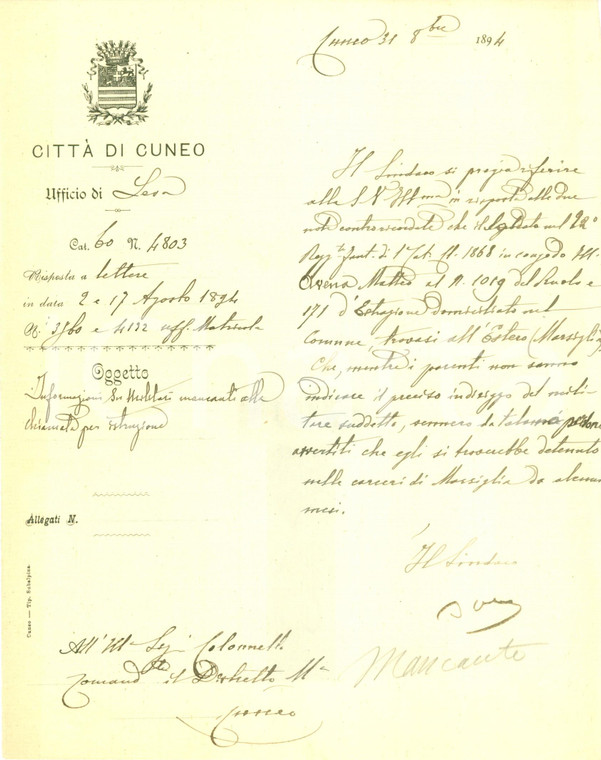 Cuneo 31 8bre 1894
CITTÀ DI CUNEO
Ufficio di Leva
Cat. 60 N. 4803
Risposta a lettere
in data 2 e 17 Agosto 1894
N. 3960 e 4132 uff. Matricola
Oggetto
Informazioni su Militari mancanti alla
chiamata per istruzione
Allegati N.
Cuneo — Tip. Subalpina
Il Sindaco si pregia riferire
alla S. V. Ill.ma in risposta alle due
note controsecondate che il soldato nel 22°
Regg.to fant. di 1ª Cat. N. 1868 in congedo Ill.
Matteo al N. 1019 del Ruolo e
171 d'Estrazione domiciliato nel
Comune trovasi all'Estero (Marsiglia)
Che, mentre i parenti non sanno
indicare il preciso indirizzo del mili-
tare suddetto, vennero da talune persone
avvertiti che egli si troverebbe detenuto
nelle carceri di Marsiglia da alcuni
mesi.
Il Sindaco
Mancante
All' Ill.mo Sig. Colonnello
Comand.te il Distretto M.re
Cuneo